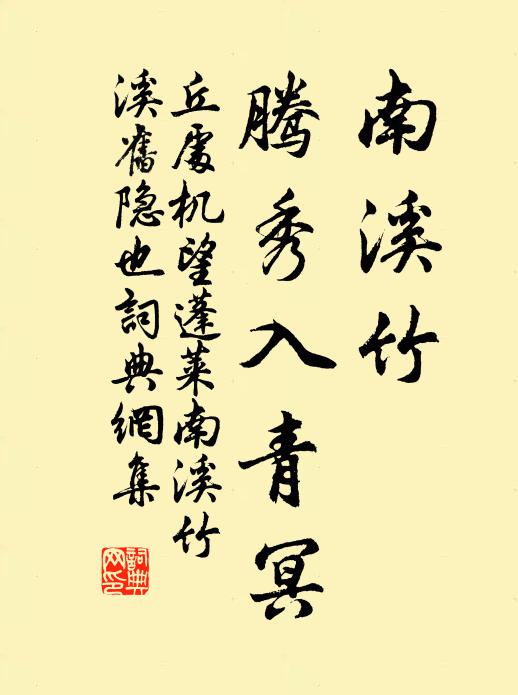 南溪竹
腾秀入青冥
丘處机望蓬莱南溪竹
溪舊隐也詞典網集
詞典
网印